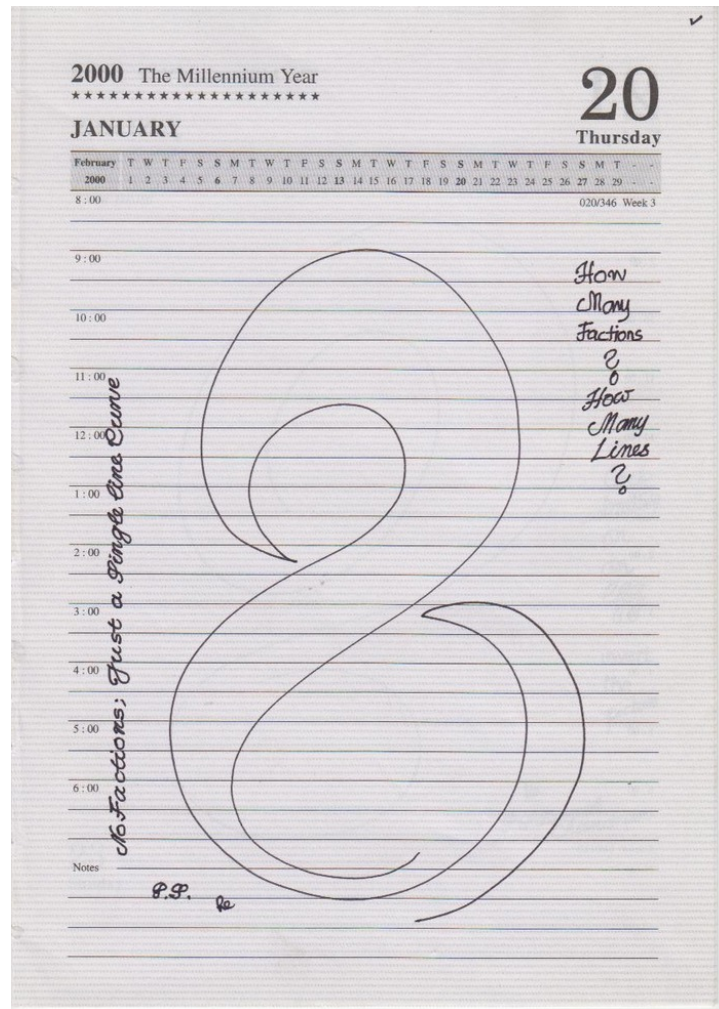 2000 The Millennium Year
★★★★★★★★★★★★★★★★★★★★
JANUARY
20
Thursday
February T W T F S S M T W T F S S M T W T F S S M T W T F S S M T - -
2000 1 2 3 4 5 6 7 8 9 10 11 12 13 14 15 16 17 18 19 20 21 22 23 24 25 26 27 28 29 - -
8:00
020/346 Week 3
9:00
10:00
11:00
12:00
1:00
2:00
3:00
4:00
5:00
6:00
Notes
How
Many
Factions
?
How
Many
Lines
?
No Factions; Just a Single line Curve
P.P.